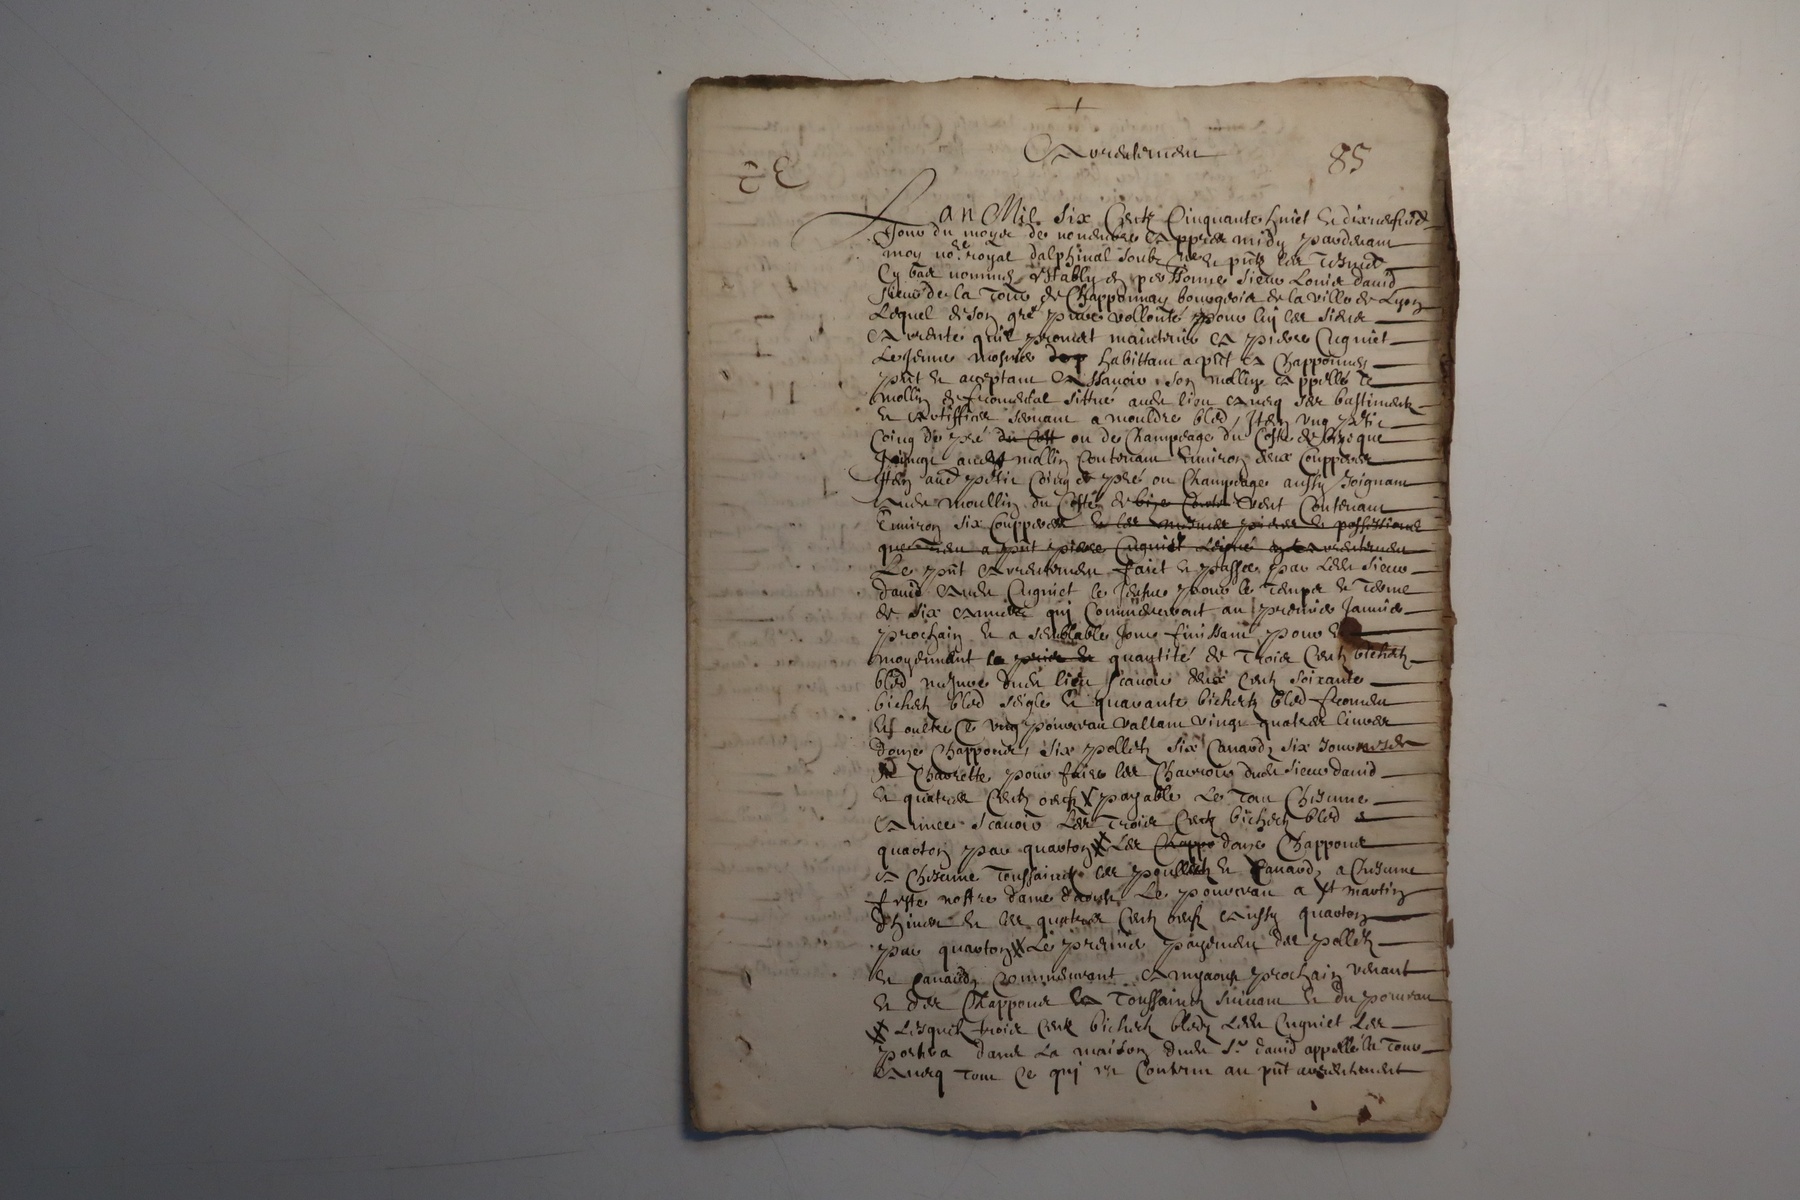 Arrentement
85
L an Mil Six Centz Cinquante huict et dixneufvie
Jour du moys de novembre Appres midy pardevant
moy no.re royal dalphinal soubz né et pñtz les tesmoins
Cy bas nommes estably en personne Sieur Louis david
sieur de la Tour de Chapponnay bourgeois de la ville de Lyon
Lequel de son gré pure vollonté pour luy les siens
Arrente et promet maintenir A pierre Cugniet
Le jeune mosnier habittant a pñt A Chapponnay
pñt et acceptant Assavoir son mollin Appellé le
mollin de fromental sittué aud lieu Avecq ses bastimentz
et Artiffices servant a mouldre bled, Item ung petit
Coing de pré du Cost ou de Champeage du Costé de
Joinct aud mollin Contenant Environ deux Coupperees
Item aud petit Coing de pré ou Champeage aussy Joignant
Aud moullin du Costé de bize Conte Vent Contenant
Environ six Coupperees et les mesmes pieces et possessions
que tien a pñt pierre Cugniet
Le pñt Arrentement faict et passé par led sieur
david Aud Cugniet le Jeune pour le temps et terme
de six Annees qui Commenceront au premier Janvier
prochain et a semblable Jour finissant pour et
moyennant le prix et quantité de Trois Centz bichetz
bled mesure dud lieu scavoir deux Centz soixante
bichetz bled seigle et quarante bichetz bled froment
Et oultre Ce ung pourceau vallant vingt quattre livres
douze Chappons, six polletz six Canardz six Journees
de Charrette pour faire les Charrois dud sieur david
et quattre Centz oeufz payable Le tout Chescune
Annee scavoir Les Trois Centz bichetz bled
quarton par quarton Les Chappo douze Chappons
A Chescune Toussainctz les poulletz et Canardz a Chescune
feste nostre dame daoust, Le pourceau a st martin
dhiver et les quattre Centz oeufz Aussy quarton
par quarton Le premier payement des polletz
et Canardz Commencant A myaoust prochain venant
et des Chappons A Toussainctz suivant et du pourceau
Lesquelz trois Centz bichetz bledz Led Cugniet Les
portera dans La maison dud s.r david appellé la Tour
Avecq tout Ce qui est Contenu au pñt arrentement